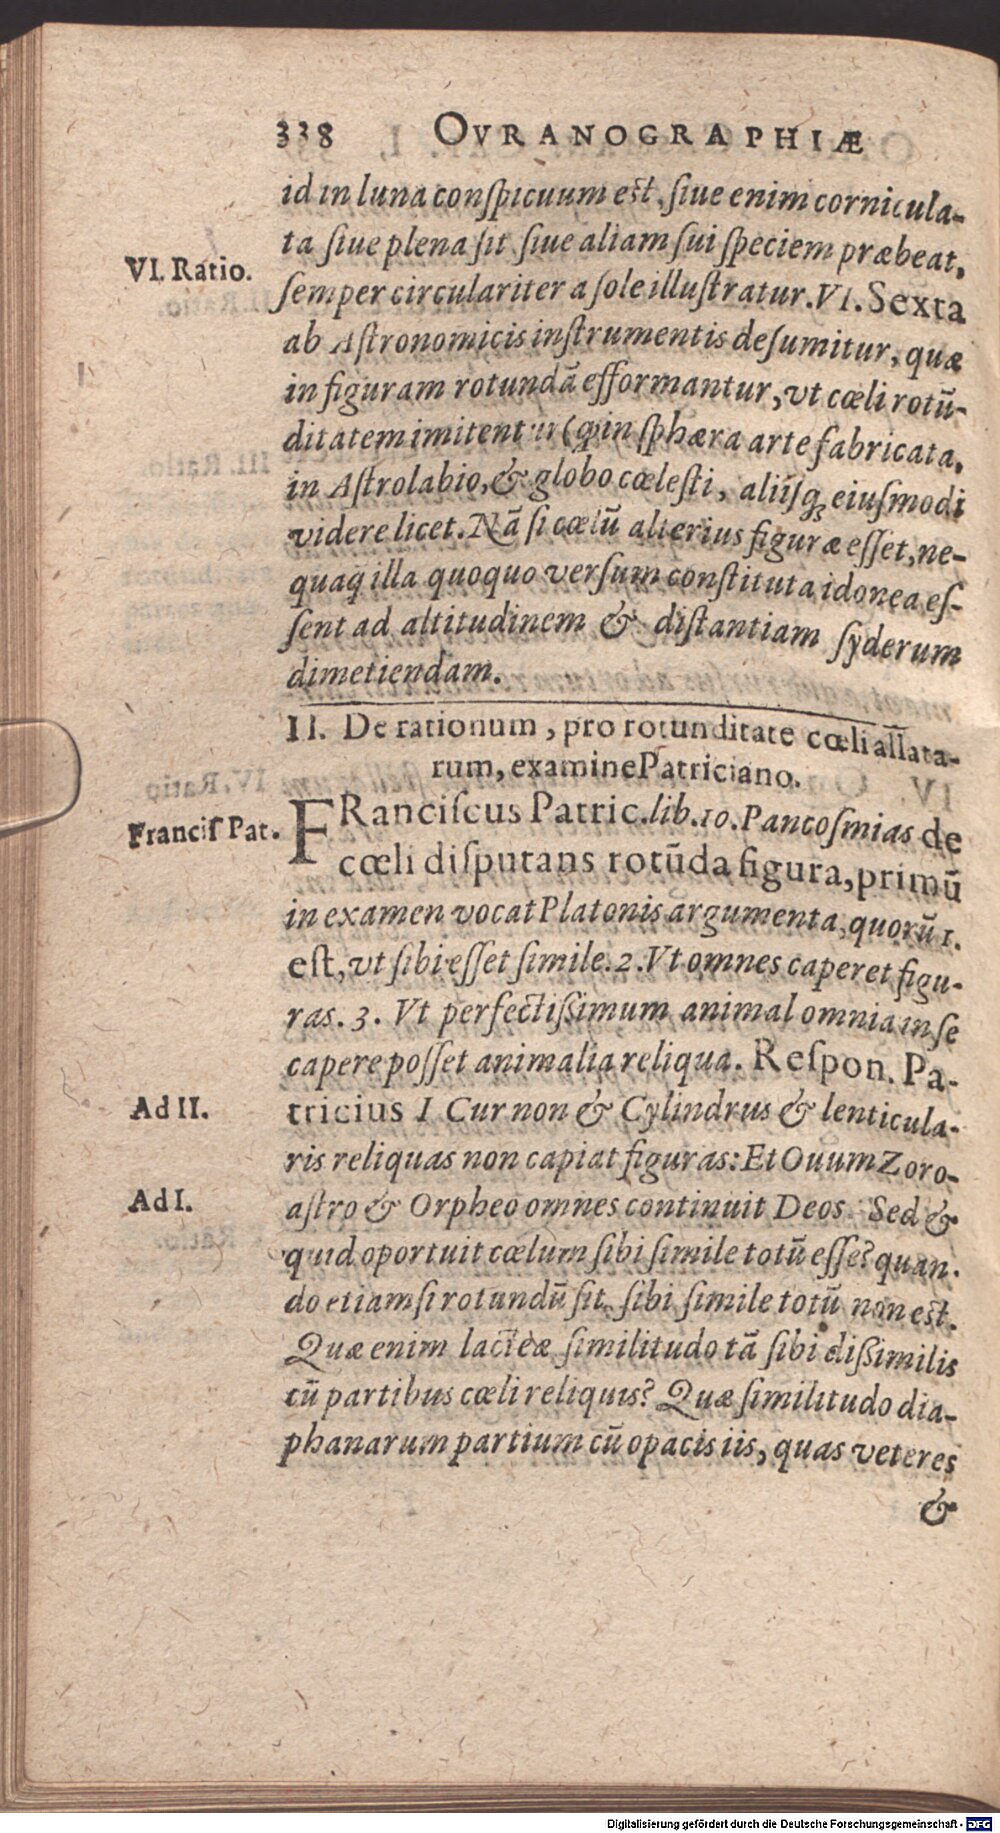 338 OVRANOGRAPHIÆ
id in luna conſpicuum est, ſiue enim cornicula-
ta ſiue plena ſit ſiue aliam ſui ſpeciem præbeat,
VI. Ratio.
ſemper circulariter a ſole illuſtratur. VI. Sexta
ab Aſtronomicis inſtrumentis deſumitur, quæ
in figuram rotundā efformantur, vt cœli rotū-
ditatem imitentur (q̃ in ſphæra arte fabricata,
in Aſtrolabio, & globo cœleſti, aliiſq; eiuſmodi
videre licet. Nā ſi cœlū alterius figuræ eſſet, ne-
quaq̃ illa quoquo verſum conſtituta idonea eſ-
ſent ad altitudinem & diſtantiam ſyderum
dimetiendam.
II. De rationum, pro rotunditate cœli allata-
rum, examine Patriciano.
Franciſ Pat.
FRanciſcus Patric. lib. 10. Pancoſmias de
cœli diſputans rotūda figura, primū
in examen vocat Platonis argumenta, quorū 1.
est, vt ſibi eſſet ſimile. 2. Vt omnes caperet figu-
ras. 3. Vt perfectiſſimum animal omnia in ſe
capere poſſet animalia reliqua. Reſpon. Pa-
Ad II.
tricius I Cur non & Cylindrus & lenticula-
ris reliquas non capiat figuras: Et Ouum Zoro-
Ad I.
aſtro & Orpheo omnes continuit Deos. Sed &
quid oportuit cœlum ſibi ſimile totū eſſe? quan-
do etiamſi rotundū ſit, ſibi ſimile totū non est.
Quæ enim lacteæ ſimilitudo tā ſibi diſſimilis
cū partibus cœli reliquis? Quæ ſimilitudo dia-
phanarum partium cū opacis iis, quas veteres
&
Digitalisierung gefördert durch die Deutsche Forschungsgemeinschaft - DFG